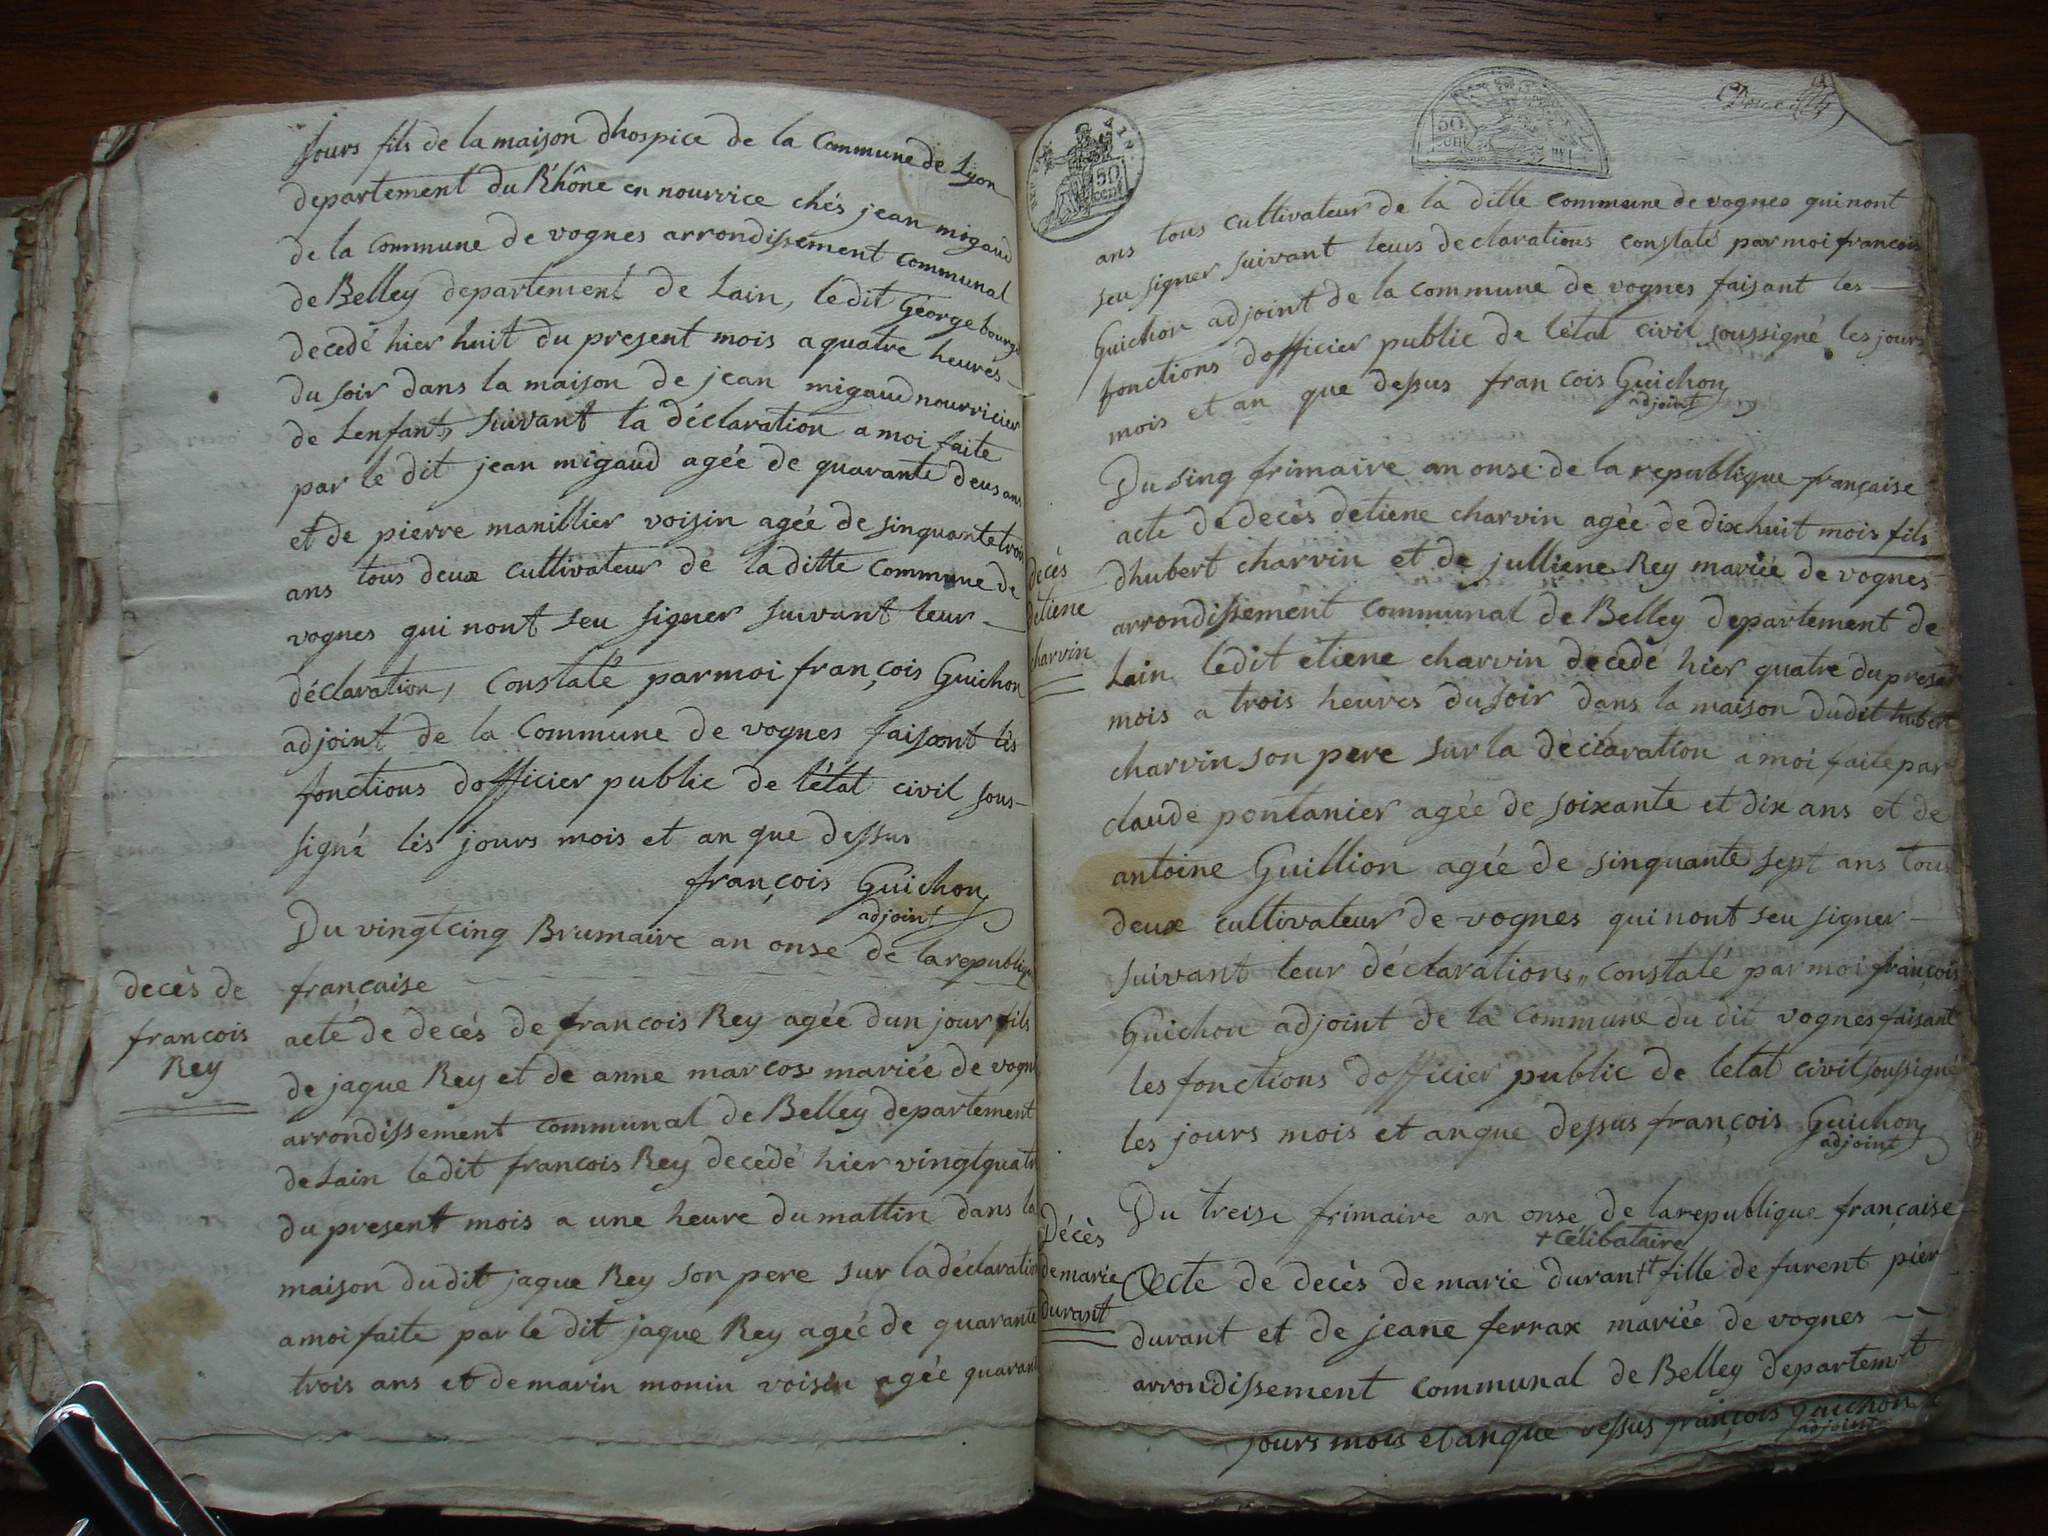 jours fils de la maison dhospice de la Commune de Lyon
departement du Rhône en nourrice chés jean migaud
de la commune de vognes arrondissement communal
de Belley departement de Lain, ledit George bourge
decedé hier huit du present mois a quatre heures
du soir dans la maison de jean migaud nourricier
de Lenfant, suivant la déclaration a moi faite
par le dit jean migaud agée de quarante deus ans
et de pierre manillier voisin agée de sinquante trois
ans tous deux cultivateur de la ditte commune de
vognes qui nont seu signer suivant leur
déclaration, Constaté par moi françois Guichon
adjoint de la Commune de vognes faisont les
fonctions dofficier public de létat civil sous-
signé les jours mois et an que dessus
françois Guichon
adjoint
Du vingtcinq Brumaire an onse de la republique
française
decès de
francois
Rey
acte de decès de francois Rey agée dun jour fils
de jaque Rey et de anne marcos mariée de vogne
arrondissement communal de Belley departement
de Lain ledit francois Rey decedé hier vingtquatr
du present mois a une heure du mattin dans la
maison dudit jaque Rey son pere sur la déclaration
a moi faite par le dit jaque Rey agée de quarante
trois ans et de marin monin voisin agée quarant
REP
50 cent
50
cen
ans tous cultivateur de la ditte commune de vognes qui nont
seu signer suivant leurs declarations constaté par moi francois
Guichon adjoint de la commune de vognes faisant les
fonctions dofficier public de létat civil soussigné les jours
mois et an que dessus francois Guichon
adjoint
Du sinq frimaire an onse de la republique française
decès
detiene
charvin
acte de decès detiene charvin agée de dixhuit mois fils
dhubert charvin et de julliene Rey mariée de vognes
arrondissement communal de Belley departement de
Lain ledit etiene charvin decedé hier quatre du presat
mois a trois heures du soir dans la maison dudit hubert
charvin son pere sur la déclaration a moi faite par
claude pontanier agée de soixante et dix ans et de
antoine Guillion agée de sinquante sept ans tous
deux cultivateur de vognes qui nont seu signer
suivant leur déclarations, constaté par moi françois
Guichon adjoint de la Commune du dit vognes faisant
les fonctions dofficier public de letat civil soussigné
les jours mois et anque dessus françois Guichon
adjoint
Du treise frimaire an onse de la republique française
+ célibataire
Décès
de marie
durant
Acte de decès de marie durant + fille de furent pier
durant et de jeane ferrax mariée de vognes
arrondissement communal de Belley departemt
jours mois et anque dessus françois Guichon
adjoint